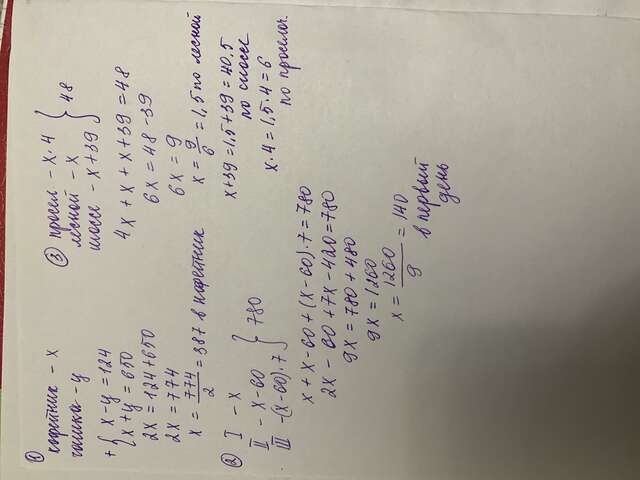 ①
кофейник - x
чашка - y
+ { x - y = 124
x + y = 650
2x = 124 + 650
2x = 774
x = 774/2 = 387 в кофейник
② I - x
II - x - 60
III - (x - 60) · 7 } 780
x + x - 60 + (x - 60) · 7 = 780
2x - 60 + 7x - 420 = 780
9x = 780 + 480
9x = 1260
x = 1260/9 = 140
в первый
день
③ просел - x · 4
лесной - x
шоссе - x + 39 } 48
4x + x + x + 39 = 48
6x = 48 - 39
6x = 9
x = 9/6 = 1,5 по лесной
x + 39 = 1,5 + 39 = 40,5
по шоссе
x · 4 = 1,5 · 4 = 6
по просёлоч